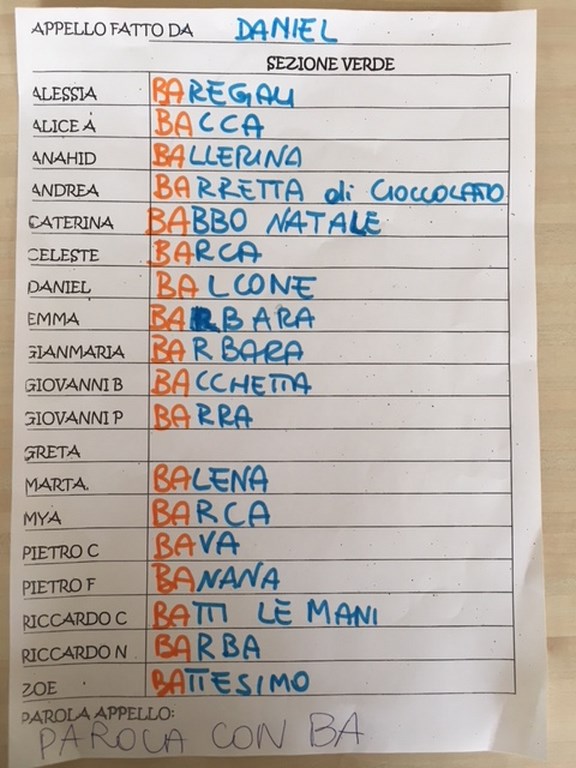 APPELLO FATTO DA DANIEL
SEZIONE VERDE
ALESSIA BAREGALI
ALICE A BACCA
ANAHID BALLERINA
ANDREA BARRETTA di CIOCCOLATO
CATERINA BABBO NATALE
CELESTE BARCA
DANIEL BALCONE
EMMA BARBARA
GIANMARIA BARBARA
GIOVANNI B BACCHETTA
GIOVANNI P BARRA
GRETA
MARTA. BALENA
MYA BARCA
PIETRO C BAVA
PIETRO F BANANA
RICCARDO C BATTI LE MANI
RICCARDO N BARBA
ZOE BATTESIMO
PAROLA APPELLO:
PAROLA CON BA